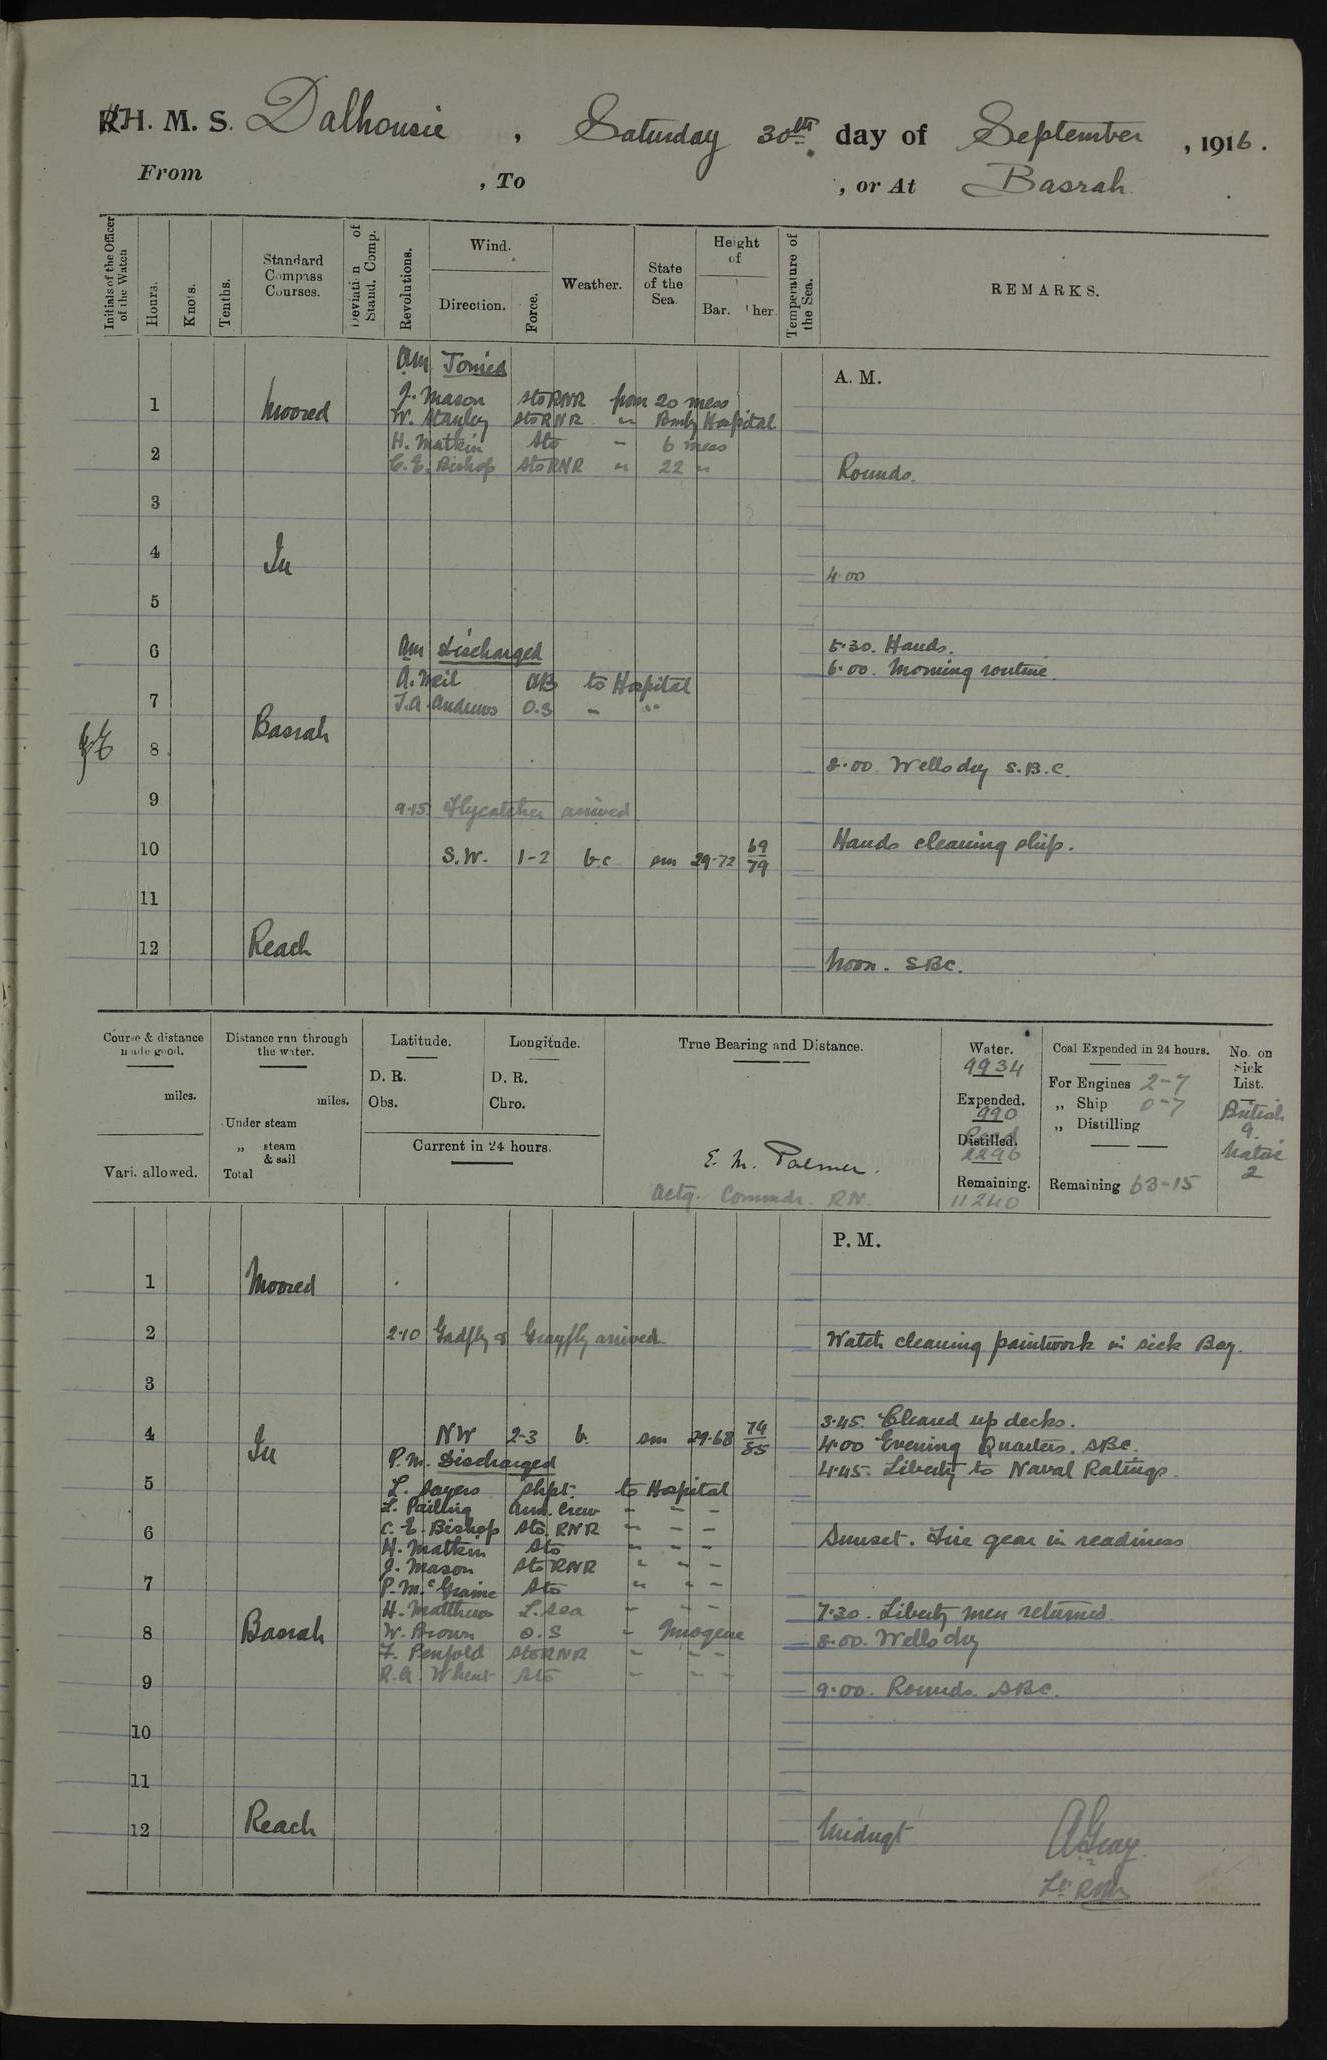 H. M. S. Dalhousie, Saturday 30th day of September, 1916.
From , To , or At Basrah
Initials of the Officer of the Watch
Hours.
Knots.
Tenths.
Standard Compass Courses.
Deviation of Stand. Comp.
Revolutions.
Wind.
Direction.
Force.
Weather.
State of the Sea.
Height of
Bar.
Ther.
Temperature of the Sea.
REMARKS.
A. M.
am Joined
1 Moored J. Mason StoRNR from 20 mess
W. Stanley StoRNR " Hospital
H. Matkin Sto - 6 mess
2 C. E. Bishop StoRNR " 22 " Rounds.
3
4 In
4.00
5
6 am Discharged 5.30. Hands.
6.00. Morning routine.
A. Weil AB to Hospital
7 J.A. Andrews O.S - "
Basrah
8
8.00. Wells dry S.B.C.
9 9.15. Flycatcher arrived
10 S.W. 1-2 b.c sm 29.72 69/79 Hands cleaning ship.
11
12 Reach
Noon. SBC.
Course & distance made good.
miles.
Vari. allowed.
Distance run through the water.
miles.
Under steam
„ steam & sail
Total
Latitude.
D. R.
Obs.
Longitude.
D. R.
Chro.
Current in 24 hours.
True Bearing and Distance.
E. M. Palmer.
Actg. Commdr. RN.
Water.
9934
Expended.
990
Distilled.
2296
Remaining.
11240
Coal Expended in 24 hours.
For Engines 2-7
„ Ship 0-7
„ Distilling
Remaining 63-15
No. on Sick List.
British
9.
Native
2
P. M.
1 Moored
2 2.10 Gadfly & Grayfly arrived. Watch cleaning paintwork in sick Bay.
3
3.45. Cleared up decks.
4 In NW 2-3 b. sm 29.68 74/85 4.00 Evening Quarters. SBC.
P.M. Discharged 4.45. Liberty to Naval Ratings.
5 L. Sayers Shpt. to Hospital
L. Pailing Arm. Crew - - -
6 C. E. Bishop Sto. RNR - - - Sunset. Fire gear in readiness
H. Matkin Sto - - -
J. Mason StoRNR " - -
7 P. McGraine Sto " - -
H. Matthews L. Sea - - - 7.30. Liberty men returned.
8 Basrah W. Brown O.S - Imogene 8.00. Wells dry
F. Penfold StoRNR - - -
9 R.A. Wheat Sto - - - 9.00. Rounds. SBC.
10
11
12 Reach Midngt
A Gray
Lt RNR